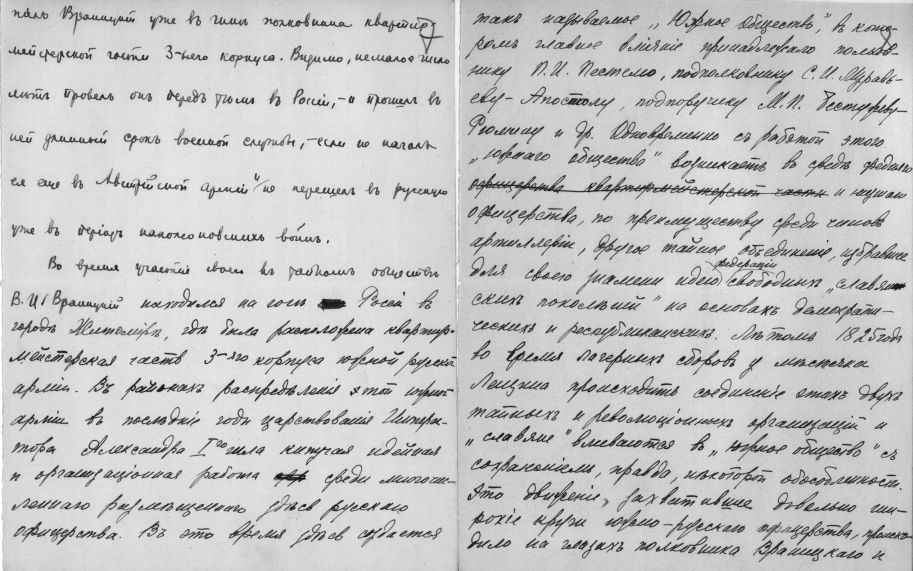 палъ Враницкій уже въ чинѣ полковника квартир-
мейстерской части 3-хъего корпуса. Видимо, немалое число
лѣтъ провелъ онъ передъ тѣмъ въ Россіи, - и прошелъ въ
ней длинный срокъ военной службы, - если по началъ
ся еще въ Австрійской арміи и перешелъ въ русскую
уже въ періодъ наполеоновскихъ войнъ.
Во время участія своего въ тайномъ обществѣ
В. И. Враницкій находился на югѣ Россіи въ
городѣ Житомірѣ, гдѣ была расположена квартир-
мейстерская часть 3-яго корпуса южной русской
арміи. Въ районахъ распредѣленія этой южной
арміи въ послѣдніе годы царствованія Импера-
тора Александра I-го шла кипучая идейная
и организаціонная работа среди многочи-
леннаго размѣщеннаго здѣсь русскаго
офицерства. Въ это время здѣсь создается
такъ называемое „Южное Общество", въ кото-
ромъ главное вліяніе принадлежало полков-
нику П. И. Пестелю, подполковнику С. И. Муравь-
еву-Апостолу, подпоручику М. П. Бестужеву-
Рюмину и др. Одновременно съ работой этого
„южнаго общества" возникаетъ въ средѣ
офицерства квартирмейстерской части и
офицерства, по преимуществу среди чиновъ
артиллеріи, другое тайное объединеніе, избравшее
для своего знамени идею федераціи свободныхъ „славян-
скихъ поколѣній" на основахъ демократи-
ческихъ и республиканскихъ. Лѣтомъ 1825 года
во время лагерныхъ сборовъ у мѣстечка
Лещина происходитъ соединеніе этихъ двухъ
тайныхъ и революціонныхъ организацій и
„славяне" вливаются въ „южное общество" съ
сохраненіемъ, правда, нѣкоторой обособленности.
Это движеніе, захватившее довольно ши-
рокіе круги южно-русскаго офицерства, происхо-
дило на глазахъ полковника Враницкаго и